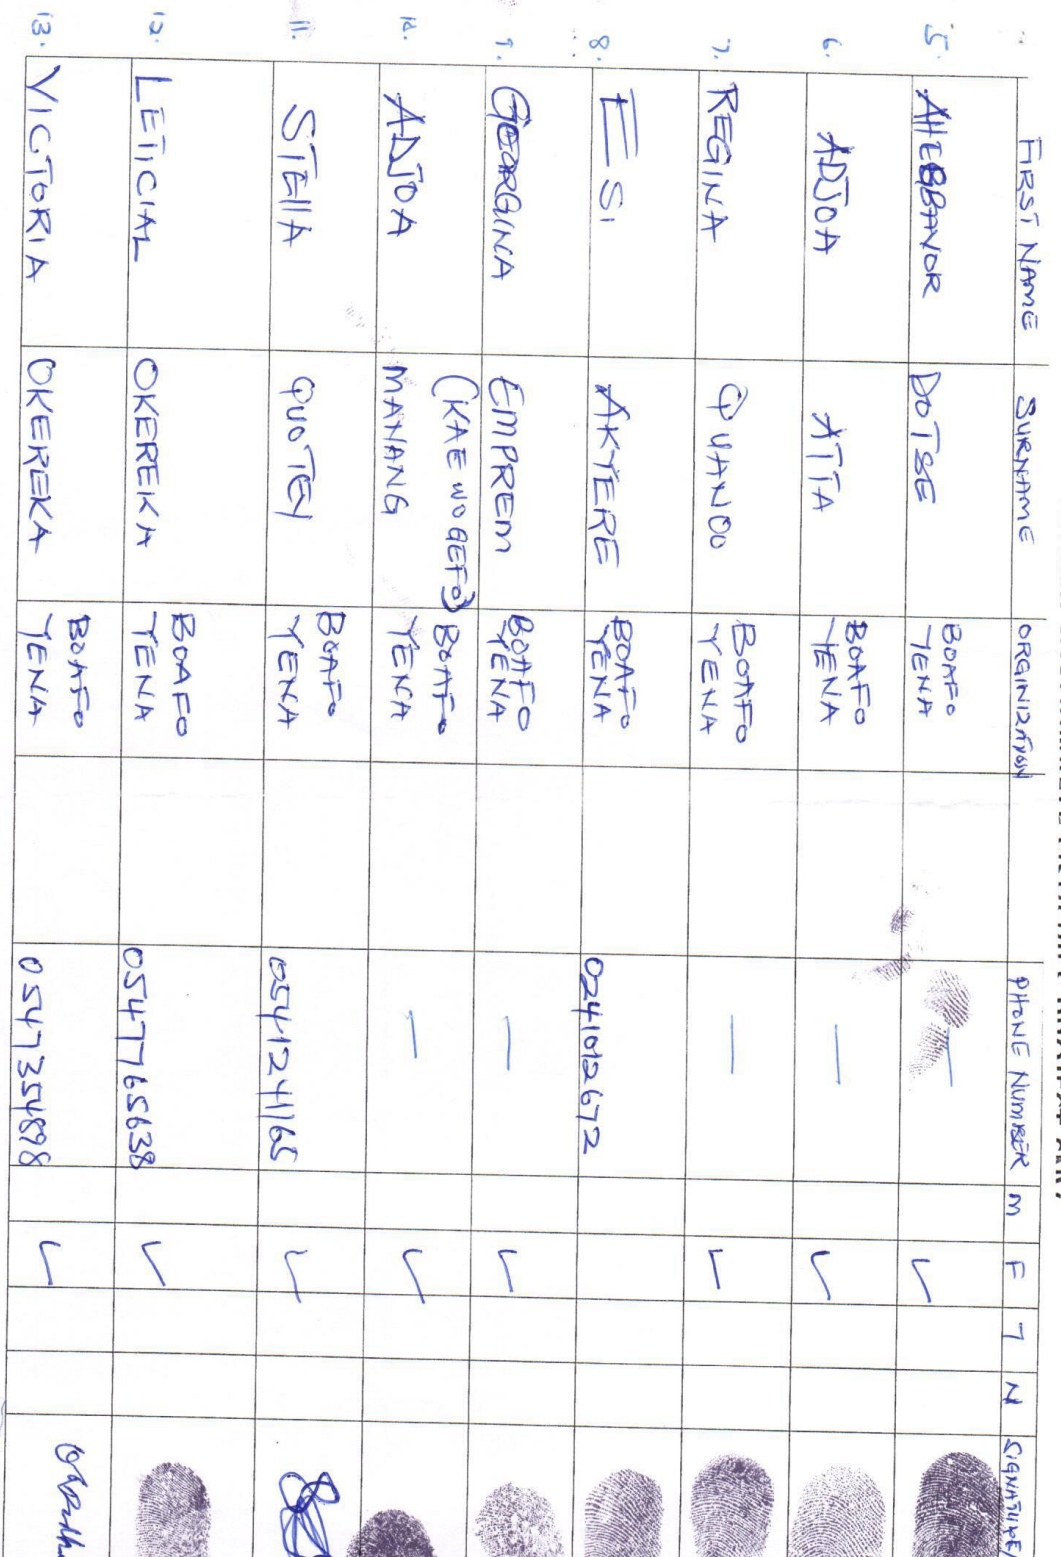 FIRST NAME SURNAME ORGINIZATION PHONE NUMBER M F 7 N SIGNATURE
5. DOTSE BOAFO YENA —
6. ADJOA ATTA BOAFO YENA —
7. REGINA QUANOO BOAFO YENA —
8. ESI AKYERE BOAFO YENA 0241012672
9. GEORGINA EMPREM BOAFO YENA —
10. ADJOA MANANG (KAE WOGEFO) BOAFO YENA —
11. STELLA QUOTEY BOAFO YENA 0541241165
12. LETICIAL OKEREKA BOAFO YENA 0547765638
13. VICTORIA OKEREKA BOAFO YENA 0547354898